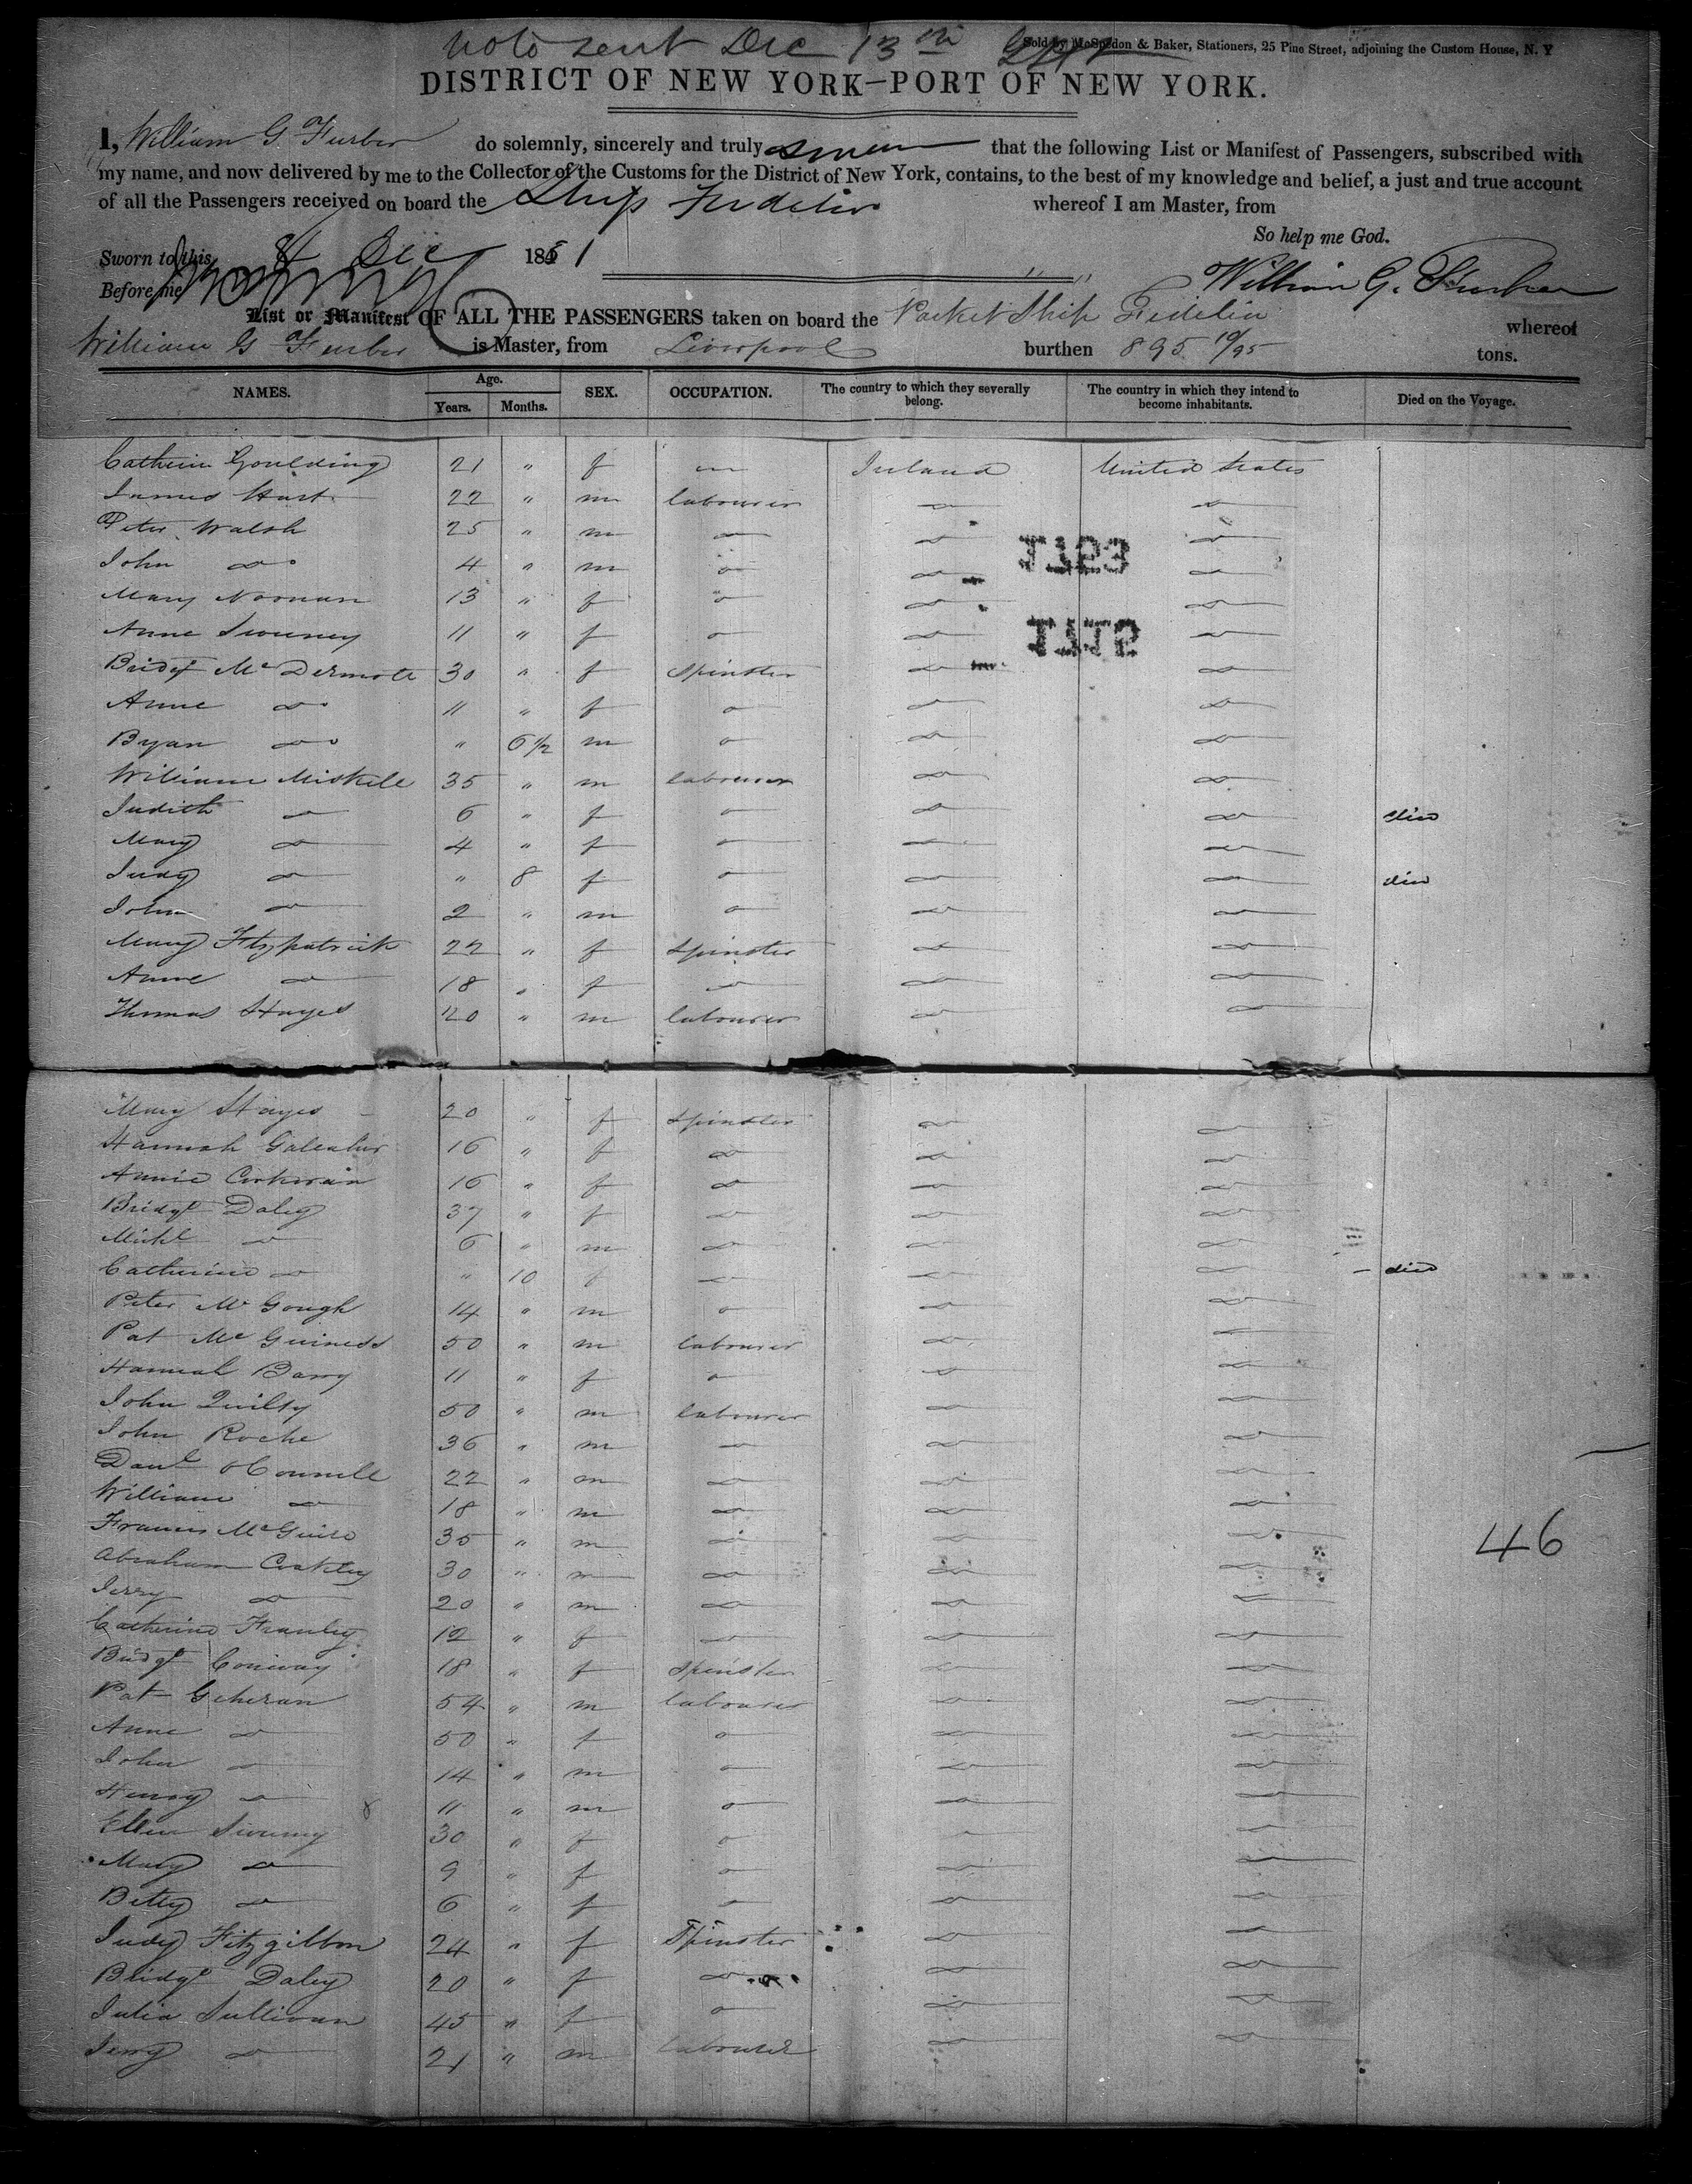 note sent Dec 13th
Sold by McSpedon & Baker, Stationers, 25 Pine Street, adjoining the Custom House, N. Y
DISTRICT OF NEW YORK—PORT OF NEW YORK.
I, William G. Furber do solemnly, sincerely and truly swear that the following List or Manifest of Passengers, subscribed with
my name, and now delivered by me to the Collector of the Customs for the District of New York, contains, to the best of my knowledge and belief, a just and true account
of all the Passengers received on board the Ship Fidelia whereof I am Master, from
So help me God.
Sworn to this 8 Dec 1851
Before me William G. Furber
List or Manifest OF ALL THE PASSENGERS taken on board the Packet Ship Fidelia whereof
William G Furber is Master, from Liverpool burthen 895 10/95 tons.
NAMES. Age. Years. Months. SEX. OCCUPATION. The country to which they severally belong. The country in which they intend to become inhabitants. Died on the Voyage.
Catherin Goulding 21 " f Ireland United States
James Hart 22 " m labourer do do
Peter Walsh 25 " m do do do
John do 4 " m do do do
Mary Noonan 13 " f do do do
Anne Sweeney 11 " f do do do
Bridgt McDermott 30 " f Spinster do do
Anne do 11 " f do do do
Byan do " 6 1/2 m do do do
William Miskell 35 " m labourer do do
Judith do 6 " f do do do died
Mary do 4 " f do do do
Judy do " 8 f do do do died
John do 2 " m do do do
Mary Fitzpatrick 22 " f Spinster do do
Anne do 18 " f do do do
Thomas Hayes 20 " m labourer do do
Mary Hayes 20 " f Spinster do do
Hannah 16 " f do do do
Annie Corkoran 16 " f do do do
Bridgt Daley 37 " f do do do
Michl do 6 " m do do do
Catherine do " 10 f do do do died
Peter Mc Gough 14 " m do do do
Pat Mc Guiness 50 " m labourer do do
Hannah Barry 11 " f do do do
John Quilty 50 " m labourer do do
John Roche 36 " m do do do
Danl oConnell 22 " m do do do
William do 18 " m do do do
Francis McGuire 35 " m do do do
Abraham Coakley 30 " m do do do
46
Jerry do 20 " m do do do
Catherine 12 " f do do do
Bridgt Conway 18 " f Spinster do do
Pat Geheran 54 " m labourer do do
Anne do 50 " f do do do
John do 14 " m do do do
Henry do 11 " m do do do
Ellen Sweeney 30 " f do do do
Mary do 9 " f do do do
Betty do 6 " f do do do
Judy Fitzgibbon 24 " f Spinster do do
Bridgt Daley 20 " f do do do
Julia Sullivan 45 " f do do do
Jerry do 21 " m labourer do do